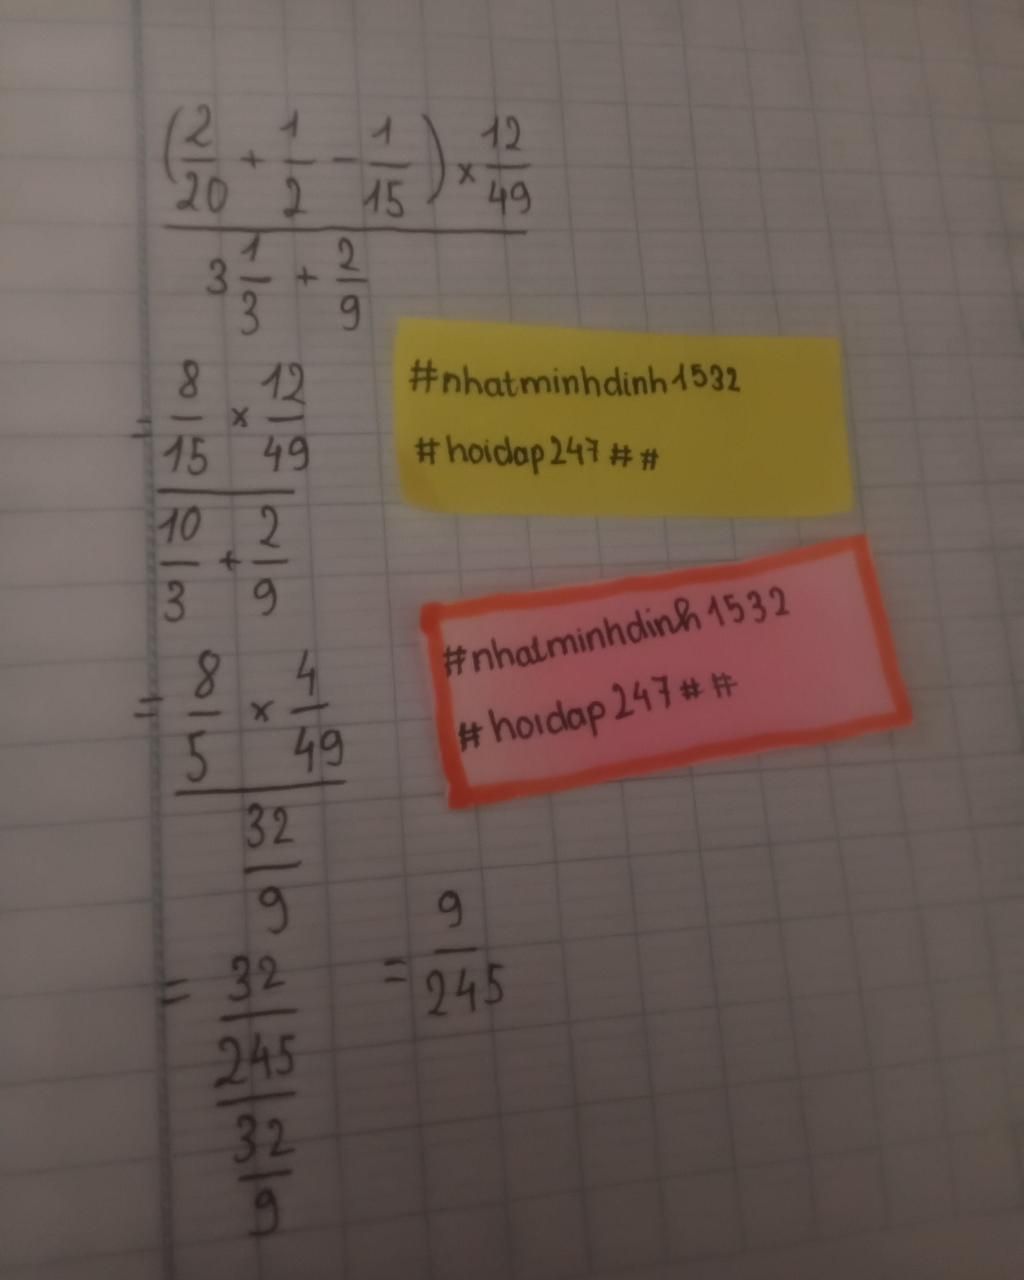 (2/20 + 1/2 - 1/15) × 12/49
3 1/3 + 2/9
= 8/15 × 12/49
10/3 + 2/9
#nhatminhdinh1532
#hoidap247##
= 8/5 × 4/49
32/9
#nhatminhdinh1532
#hoidap247##
= 32/245
32/9
= 9/245